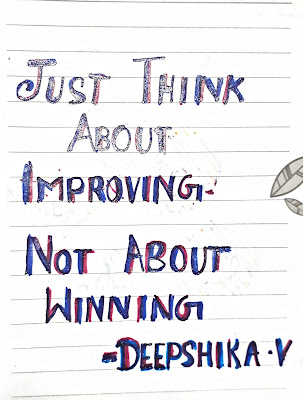 JUST THINK
ABOUT
IMPROVING.
NOT ABOUT
WINNING
-DEEPSHIKA.V